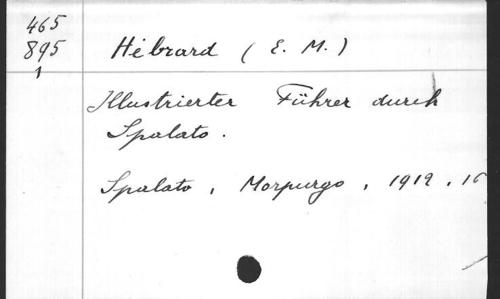 465
895
1
Hébrard ( E. M. )
Illustrierter Führer durch
Spalato .
Spalato , Morpurgo , 1912 , 16